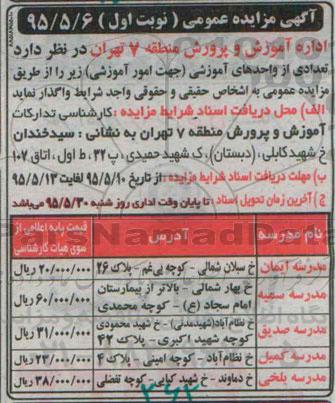 آگهی مزایده عمومی ( نوبت اول ) ۹۵/۵/۶
اداره آموزش و پرورش منطقه ۷ تهران در نظر دارد
تعدادی از واحدهای آموزشی (جهت امور آموزشی) زیر را از طریق
مزایده عمومی به اشخاص حقیقی و حقوقی واجد شرایط واگذار نماید
الف) محل دریافت اسناد شرایط مزایده : کارشناسی تدارکات
آموزش و پرورش منطقه ۷ تهران به نشانی : سیدخندان
خ شهیدکابلی، (دبستان)، ک شهید حمیدی، پ ۳۲، ط اول، اتاق ۱۰۷
ب) مهلت دریافت اسناد شرایط مزایده : از تاریخ ۹۵/۵/۱۰ لغایت ۹۵/۵/۱۳
ج) آخرین زمان تحویل اسناد : تا پایان وقت اداری روز شنبه ۹۵/۵/۳۰ می‌باشد
نام مدرسه آدرس قیمت پایه اعلامی از سوی هیات کارشناسی
مدرسه ایمان خ سبلان شمالی - کوچه بی‌غم - پلاک ۲۶ ۲۰/۰۰۰/۰۰۰ ریال
مدرسه سمیه خ بهار شمالی - بالاتر از بیمارستان امام سجاد (ع) - کوچه محمدی ۶۰/۰۰۰/۰۰۰ ریال
مدرسه صدیق خ نظام‌آباد (شهیدمدنی) - خ شهید محمودی کوچه شهید اکبری - پلاک ۴۲ ۳۱/۰۰۰/۰۰۰ ریال
مدرسه کمیل خ نظام‌آباد - کوچه امینی - پلاک ۴ ۲۳/۰۰۰/۰۰۰ ریال
مدرسه بلخی خ دماوند - خ شهید کیایی - کوچه تفضلی ۳۸/۰۰۰/۰۰۰ ریال